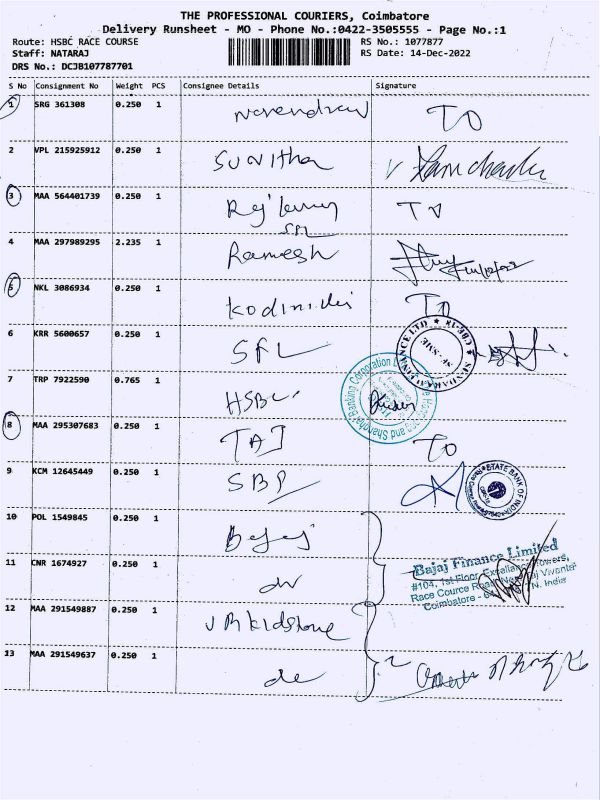 THE PROFESSIONAL COURIERS, Coimbatore
Delivery Runsheet - MO - Phone No.:0422-3505555 - Page No.:1
Route: HSBC RACE COURSE
Staff: NATARAJ
DRS No.: DCJB107787701
RS No.: 1077877
RS Date: 14-Dec-2022
S No Consignment No Weight PCS Consignee Details Signature
1 SRG 361308 0.250 1 narendran TO
2 VPL 215925912 0.250 1 Sunitha
3 MAA 564401739 0.250 1 TO
4 MAA 297989295 2.235 1 Ramesh
5 NKL 3086934 0.250 1 TO
6 KRR 5600657 0.250 1 SFL
SUNDARAM FINANCE LTD
7 TRP 7922590 0.765 1 HSBC
Hongkong and Shanghai Banking Corporation
8 MAA 295307683 0.250 1 TAJ TO
9 KCM 12645449 0.250 1 SBI
STATE BANK OF INDIA
10 POL 1549845 0.250 1 Bajaj
Bajaj Finance Limited
11 CNR 1674927 0.250 1 do
#104, 1st Floor, Excellance Towers,
Race Cource Road, Near Taj Vivanta
Coimbatore - N. India
12 MAA 291549887 0.250 1
13 MAA 291549637 0.250 1 do